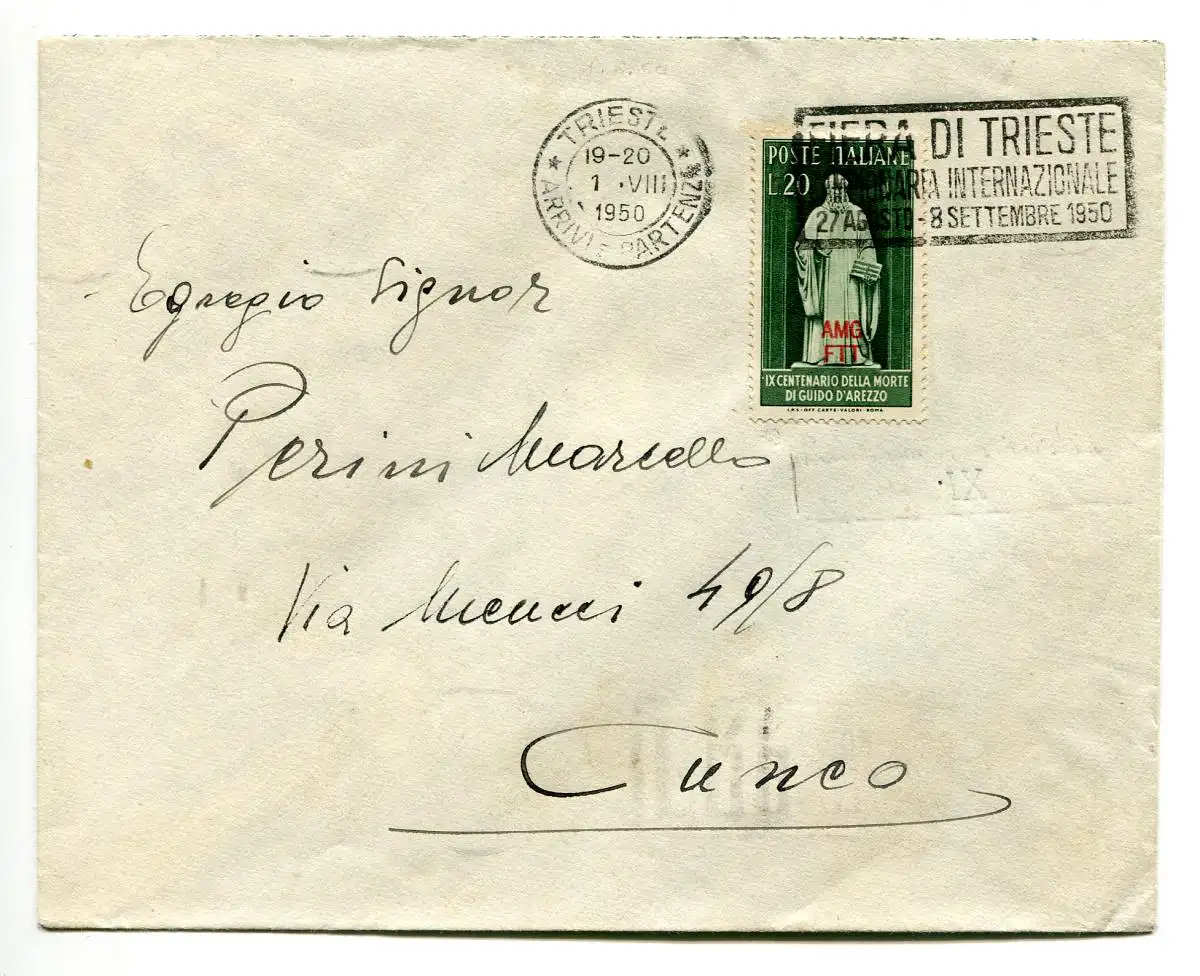 TRIESTE
19-20
1 . VIII
1950
ARRIVI E PARTENZE
FIERA DI TRIESTE
INTERNAZIONALE
27 AGOSTO - 8 SETTEMBRE 1950
POSTE ITALIANE
L.20
AMG
FTT
IX CENTENARIO DELLA MORTE
DI GUIDO D'AREZZO
I.P.S. - OFF. CARTE - VALORI - ROMA
Egregio Signor
Perini Marcello
Via Meucci 49/8
Cuneo